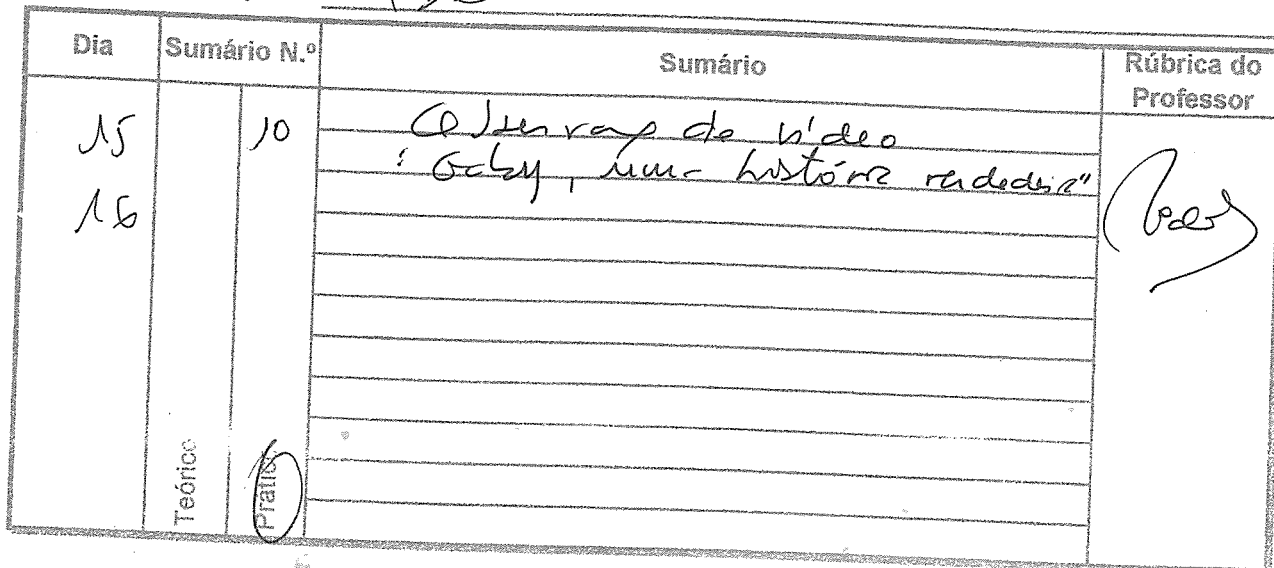 Dia Sumário N.º Sumário Rúbrica do Professor
15 10 Observação do vídeo
"Gaby, uma história verdadeira"
16
Teórico Pratico